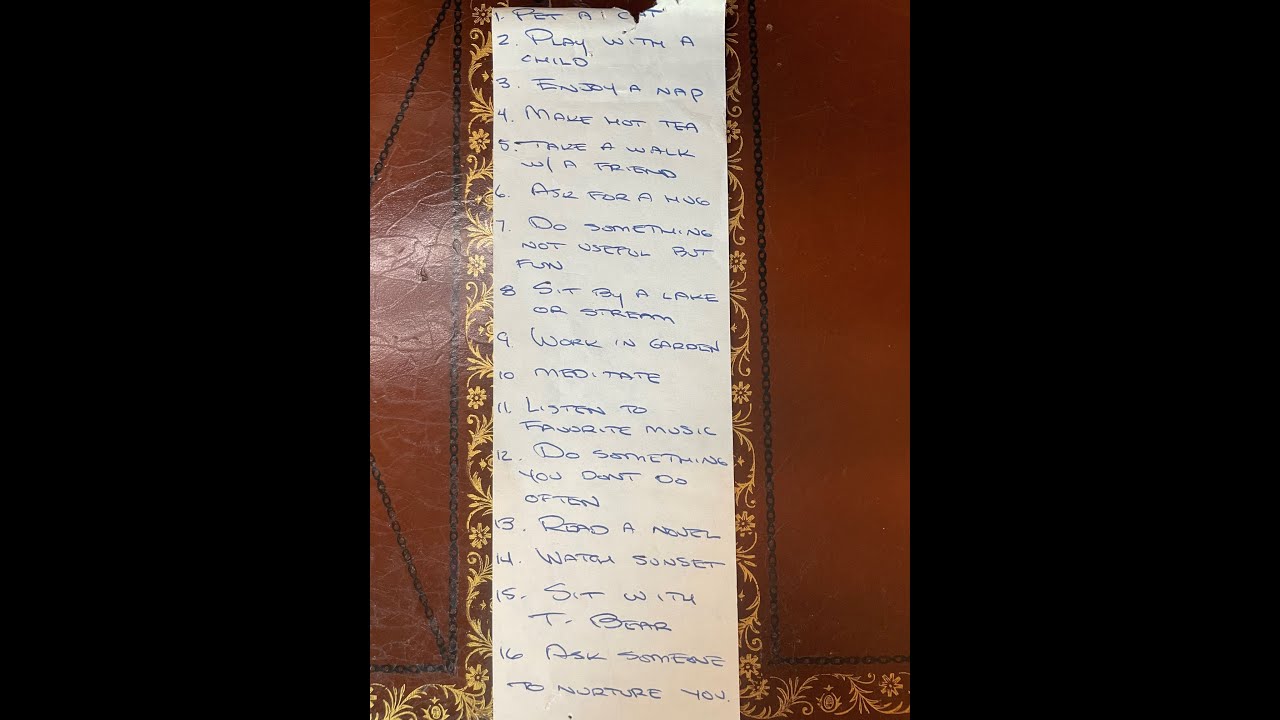 1. PET A CAT
2. PLAY WITH A
CHILD
3. ENJOY A NAP
4. MAKE HOT TEA
5. TAKE A WALK
W/ A FRIEND
6. ASK FOR A HUG
7. DO SOMETHING
NOT USEFUL BUT
FUN
8 SIT BY A LAKE
OR STREAM
9. WORK IN GARDEN
10 MEDITATE
11. LISTEN TO
FAVORITE MUSIC
12. DO SOMETHING
YOU DONT DO
OFTEN
13. READ A NOVEL
14. WATCH SUNSET
15. SIT WITH
T. BEAR
16 ASK SOMEONE
TO NURTURE YOU.